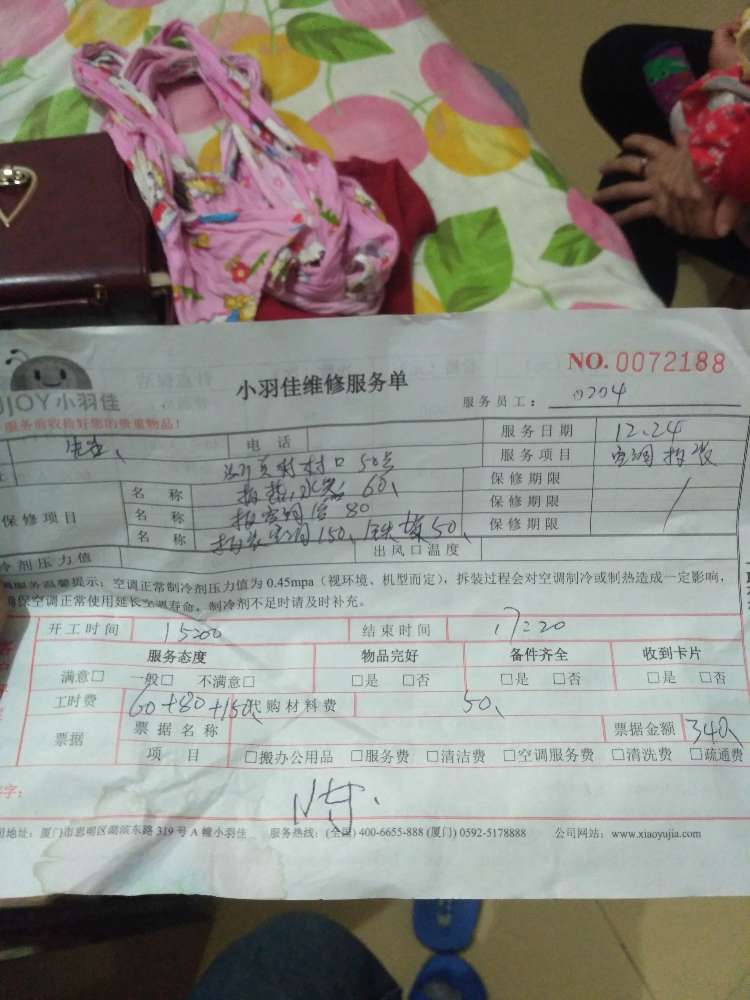 NO. 0072188
JOY小羽佳
小羽佳维修服务单
服务员工： 0204
服务前收拾好您的贵重物品！
电 话
服务日期 12.24
村口 50号
服务项目 空调拆装
保修项目
名 称 60、
保修期限
名 称 拆空调 80
保修期限
名 称 拆装空调150、 50、
保修期限
冷剂压力值
出风口温度
服务温馨提示：空调正常制冷剂压力值为 0.45mpa（视环境、机型而定），拆装过程会对空调制冷或制热造成一定影响，
确保空调正常使用延长空调寿命，制冷剂不足时请及时补充。
开工时间
结束时间 17:20
服务态度 物品完好 备件齐全 收到卡片
满意□ 一般□ 不满意□ □是 □否 □是 □否 □是 □否
工时费 60+80+150、 代购材料费 50、
票据 票据名称 票据金额 340
项 目 □搬办公用品 □服务费 □清洁费 □空调服务费 □清洗费 □疏通费
字：
司地址：厦门市思明区湖滨东路 319 号 A 幢小羽佳 服务热线：(全国) 400-6655-888 (厦门) 0592-5178888 公司网站：www.xiaoyujia.com